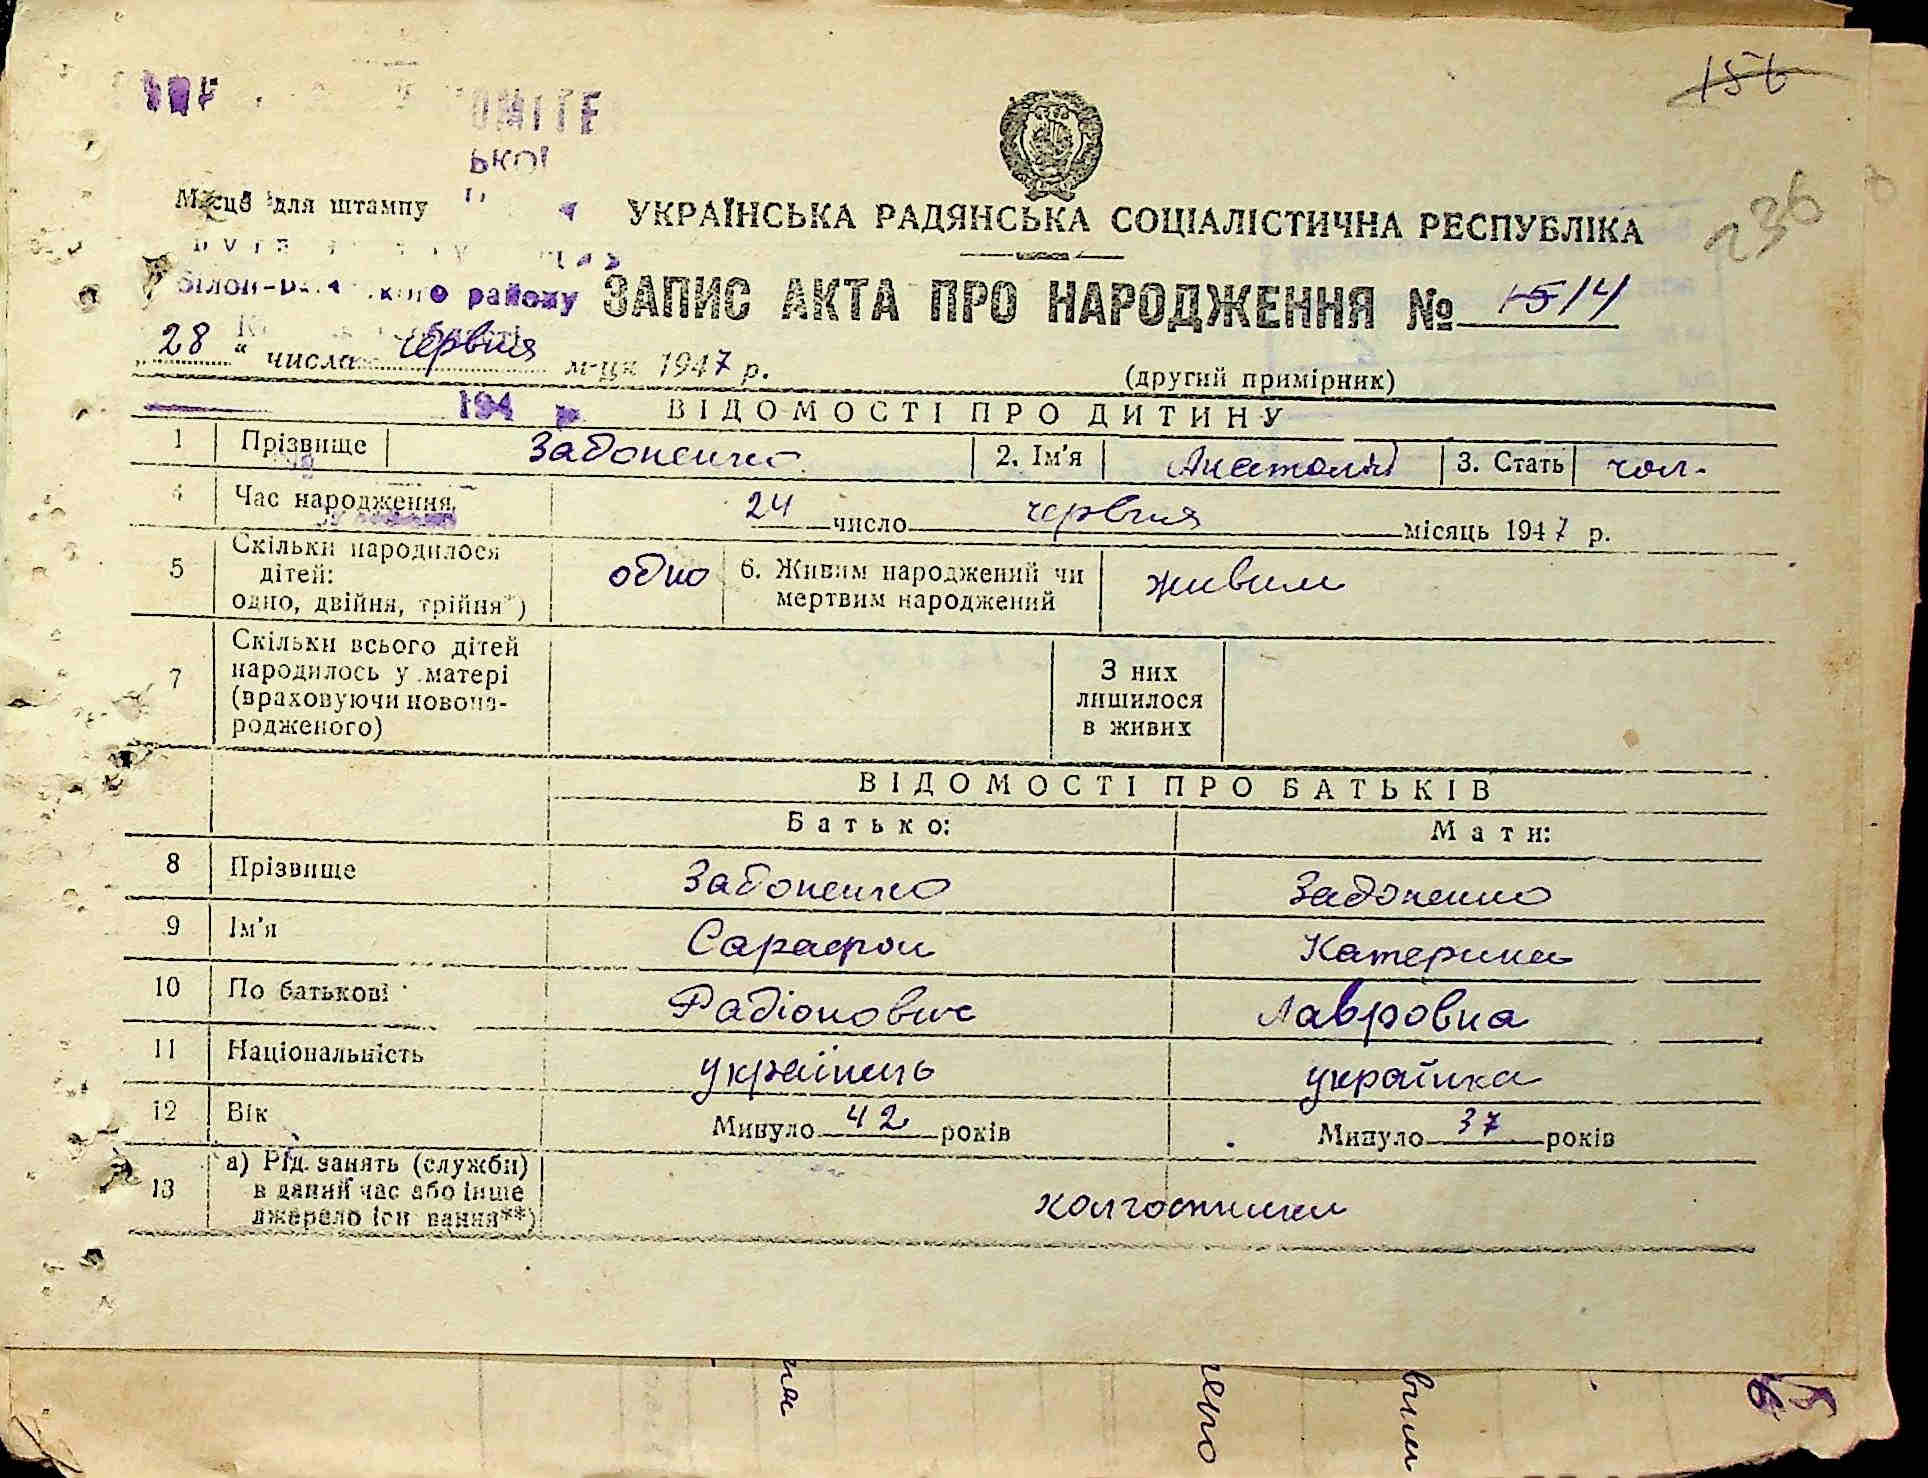 156
ОМІТЕ
ЬКОЇ
Місце для штампу
УКРАЇНСЬКА РАДЯНСЬКА СОЦІАЛІСТИЧНА РЕСПУБЛІКА
236
району
ЗАПИС АКТА ПРО НАРОДЖЕННЯ № 15/14
„28“ числа червня м-ця 1947 р.
(другий примірник)
194 р.
ВІДОМОСТІ ПРО ДИТИНУ
1 Прізвище Забоненко 2. Ім'я Анатолій 3. Стать чол.
4 Час народження 24 число червня місяць 1947 р.
5 Скільки народилося дітей: одно, двійня, трійня*) одно 6. Живим народжений чи мертвим народжений живим
7 Скільки всього дітей народилось у матері (враховуючи новонародженого) З них лишилося в живих
ВІДОМОСТІ ПРО БАТЬКІВ
Батько: Мати:
8 Прізвище Забоненко Забоненко
9 Ім'я Сарафон Катерина
10 По батькові Радіонович Лавровна
11 Національність українець українка
12 Вік Минуло 42 років Минуло 37 років
13 а) Рід занять (служби) в даний час або інше джерело існування**) колгоспники